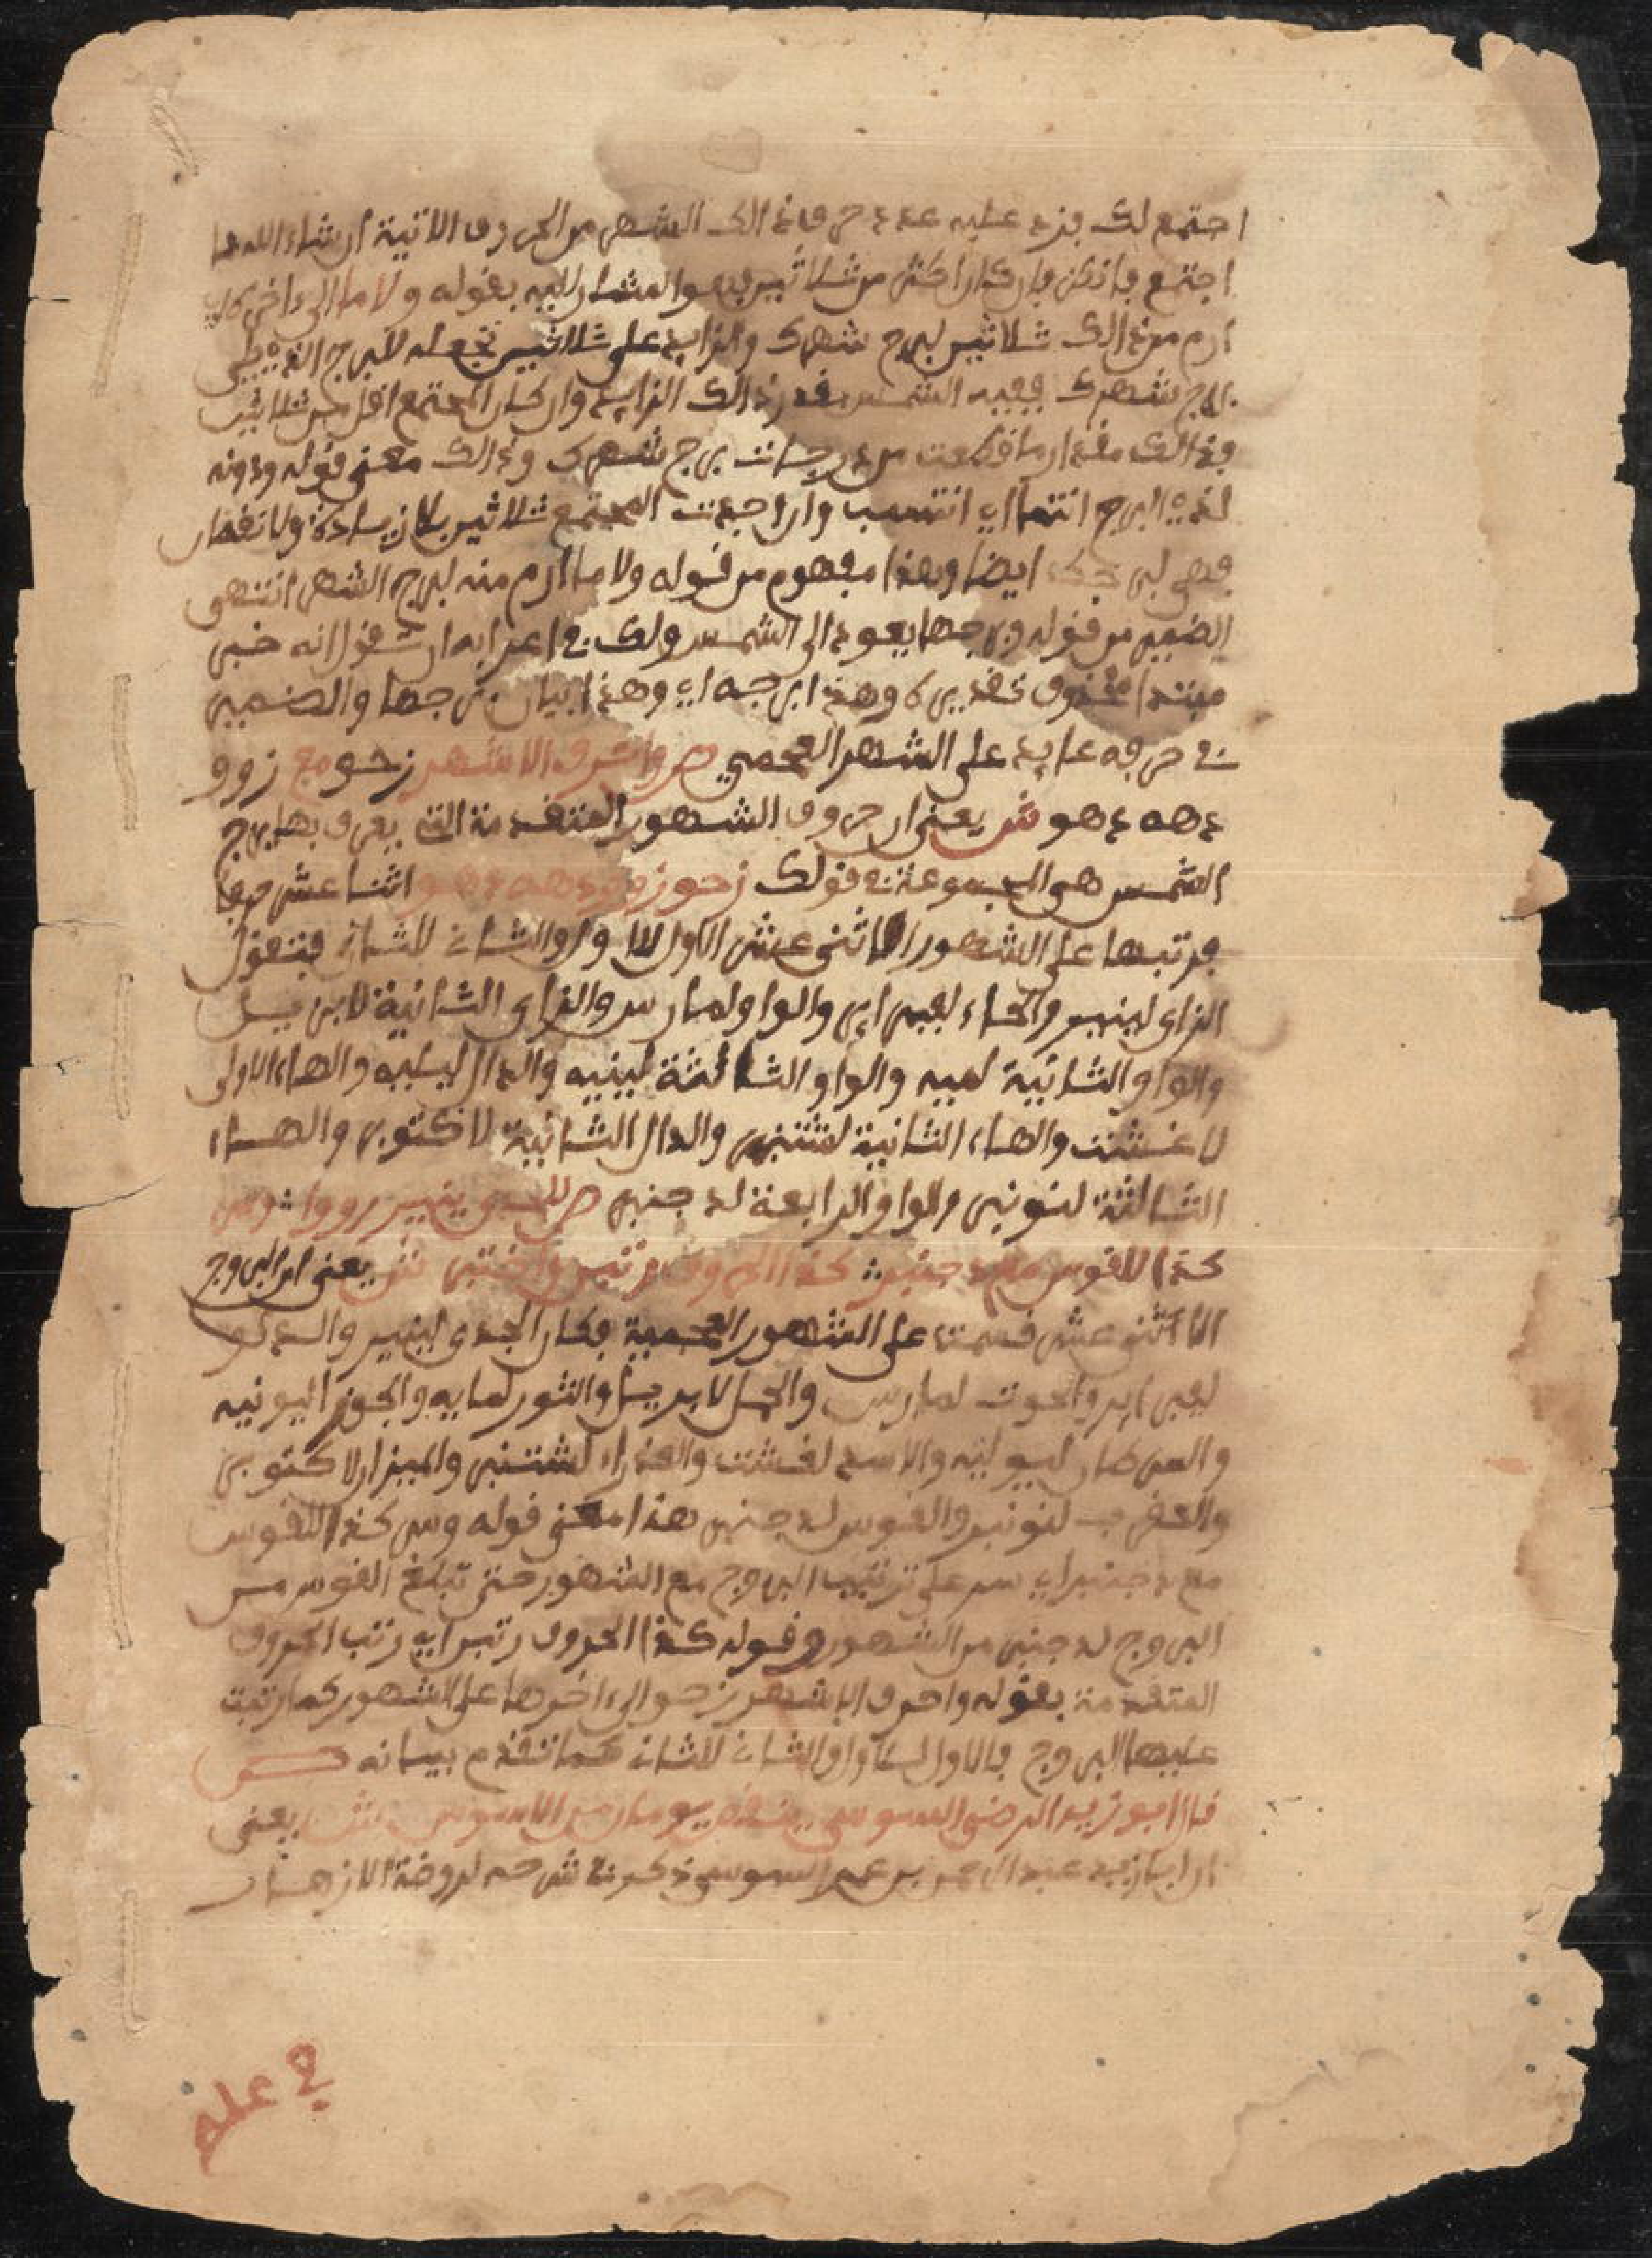 اجتمع لك فزد عليه عدد حرف ذالك الشهر من الحروف الآتية ان شاء الله فما
اجتمع فانظر فان كان اكثر من ثلاثين فهو المشار اليه بقوله ولاما الى ءاخر كلامه
ارم من ذالك ثلاثين لبرج شهرك والزايد على ثلاثين تجعله للبرج الذي يلي
برج شهرك ففيه الشمس بقدر ذالك الزايد وان كان المجتمع اقل من ثلاثين
فذالك مقدار ما قطعت من درجات برج شهرك وذالك معنى قوله ودونه
لذي البرج انتما اي انتسب وان وجدت المجتمع ثلاثين بلا زيادة ولا نقصان
فهي لبرجك ايضا وهذا مفهوم من قوله ولاما ارم منه لبرج الشهر انتهى
الضمير من قوله وبرجها يعود الى الشمس ولك في اعرابه ان تقول انه خبر
مبتدا محذوف تقديره وهذا برجه اي وهذا بيان برجها والضمير
في حرفه عايد على الشهر العجمي ص واحرف الاشهر زحو مع زوو
دهه دهو ش يعني ان حروف الشهور المتقدمة التي يعرف بها برج
الشمس هي المجموعة في قولك زحوزوودههدهو اثنا عشر حرفا
فرتبها على الشهور الاثني عشر الاول للاول والثاني للثاني فتقول
الزاي لينير والحاء لفبراير والواو لمارس والزاي الثانية لابريل
والواو الثانية لميه والواو الثالثة لينيه والدال ليليه والهاء الاولى
لاغشت والهاء الثانية لشتنبر والدال الثانية لاكتوبر والهاء
الثالثة لنونبر والواو الرابعة لدجنبر ص للجدي ينير رووا وسر
كذا للقوس مع دجنبر كذا الحروف رتبن واختبر ش يعني ان البروج
الاثني عشر قسمت على الشهور العجمية فكان الجدي لينير والدلو
لفبراير والحوت لمارس والحمل لابريل والثور لمايه والجوزا ليونيه
والسرطان ليوليه والاسد لغشت والعذراء لشتنبر والميزان لاكتوبر
والعقرب لنونبر والقوس لدجنبر هذا معنى قوله وسر كذا للقوس
مع دجنبر اي سر على ترتيب البروج مع الشهور حتى تبلغ القوس من
البروج لدجنبر من الشهور وقوله كذا الحروف رتبن اي رتب الحروف
المتقدمة بقوله واحرف الاشهر زحو الى ءاخرها على الشهور كما رتبت
عليها البروج فالاول للاول والثاني للثاني كما تقدم بيانه ص
قال ابو زيد الرضى السوسي ينقص يومان من الاسوس ش يعني
ان ابا زيد عبد الرحمن بن عمر السوسي ذكر في شرحه لروضة الازهار
في علم